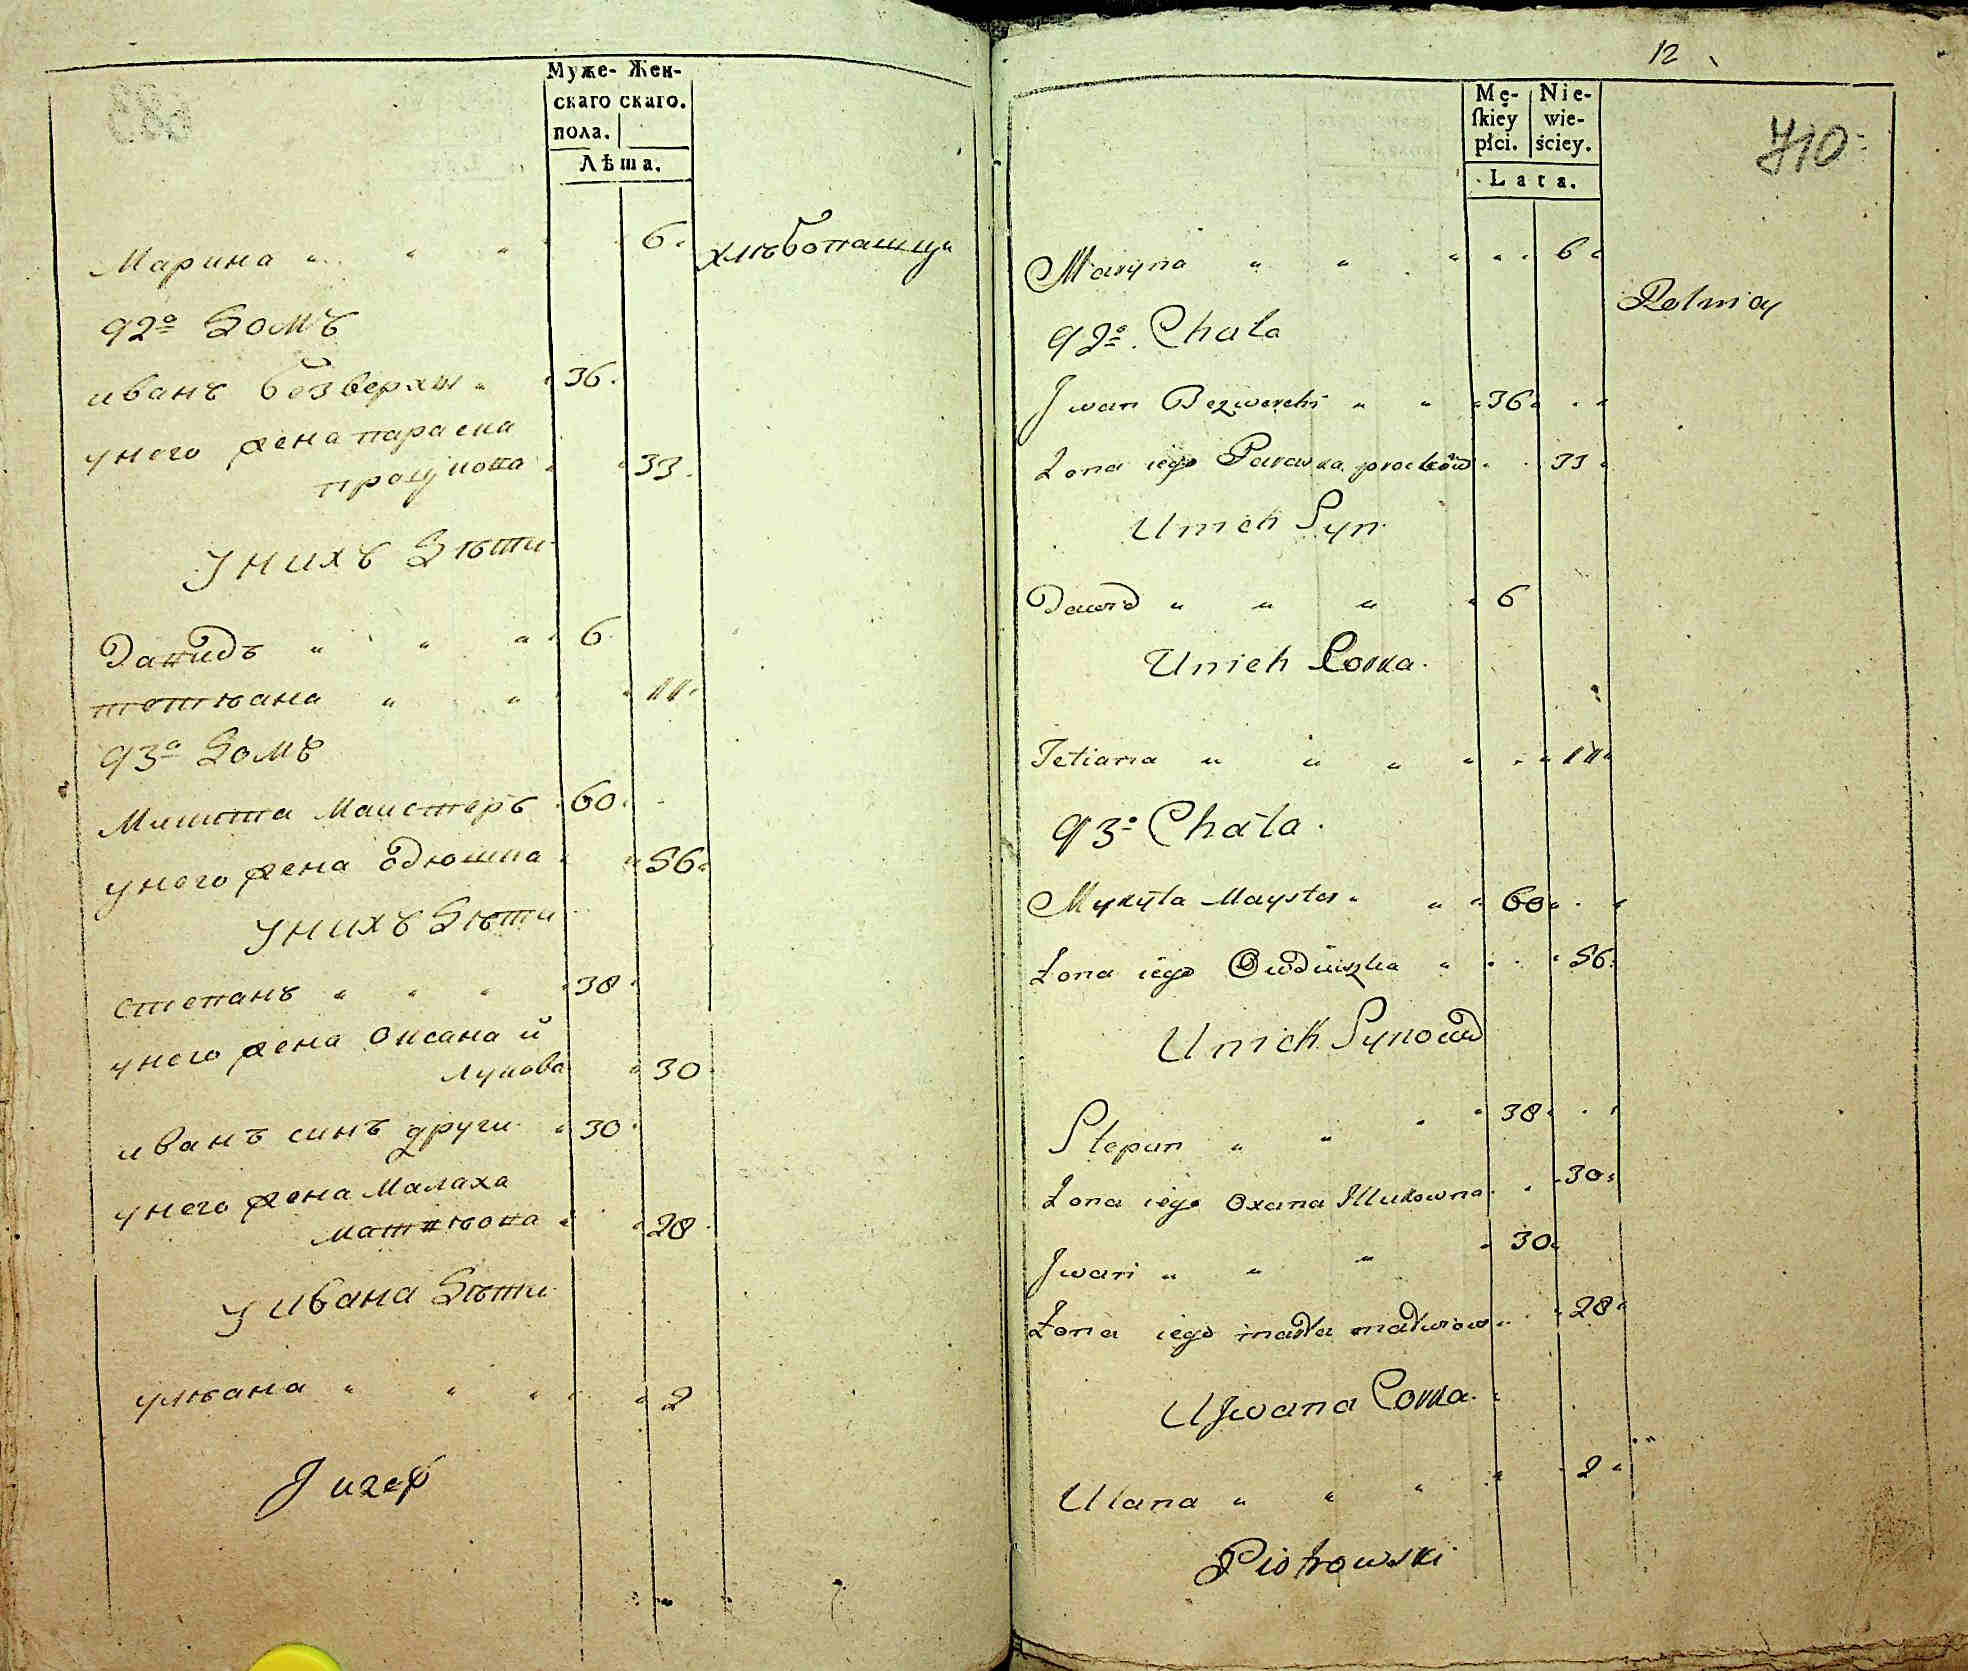 Муже- Жен-
скаго скаго.
пола.
Лѣта.
Марина " " " 6
хлѣбопашци
92º Домъ
иванъ безверхи " 36
унего жена параска
процкова 33
Унихъ Дѣти
Давидъ " " " 6
тетяна " " 11
93º Домъ
Микита Маистеръ 60
унего жена Овдюшка 56
Унихъ Дѣти
степанъ " " " 38
унего жена Оксана
лукова 30
иванъ синъ други 30
унего жена Малаха
30
28
У ивана Дѣти
уляна " " " 2
12
710
Mę- Nie-
ſkiey wie-
płci. ściey.
Lata.
Maryna " " " 6
Rolnicy
92º Chata
Jwan Bezwerchi " " 36
Żona iego Paraska prockow 33
Unich Syn
Dawid " " " 6
Unich Corka.
Tetiana " " " " 11
93º Chata.
Mykyta Mayster " " 60
Żona iego Owdiuszka " 56
Unich Synow
Stepan " " " 38
Żona iego Oxana 30
Jwan " " " 30
Żona iego 28
UJwana Corka.
Ulana " " " 2
Piotrowski